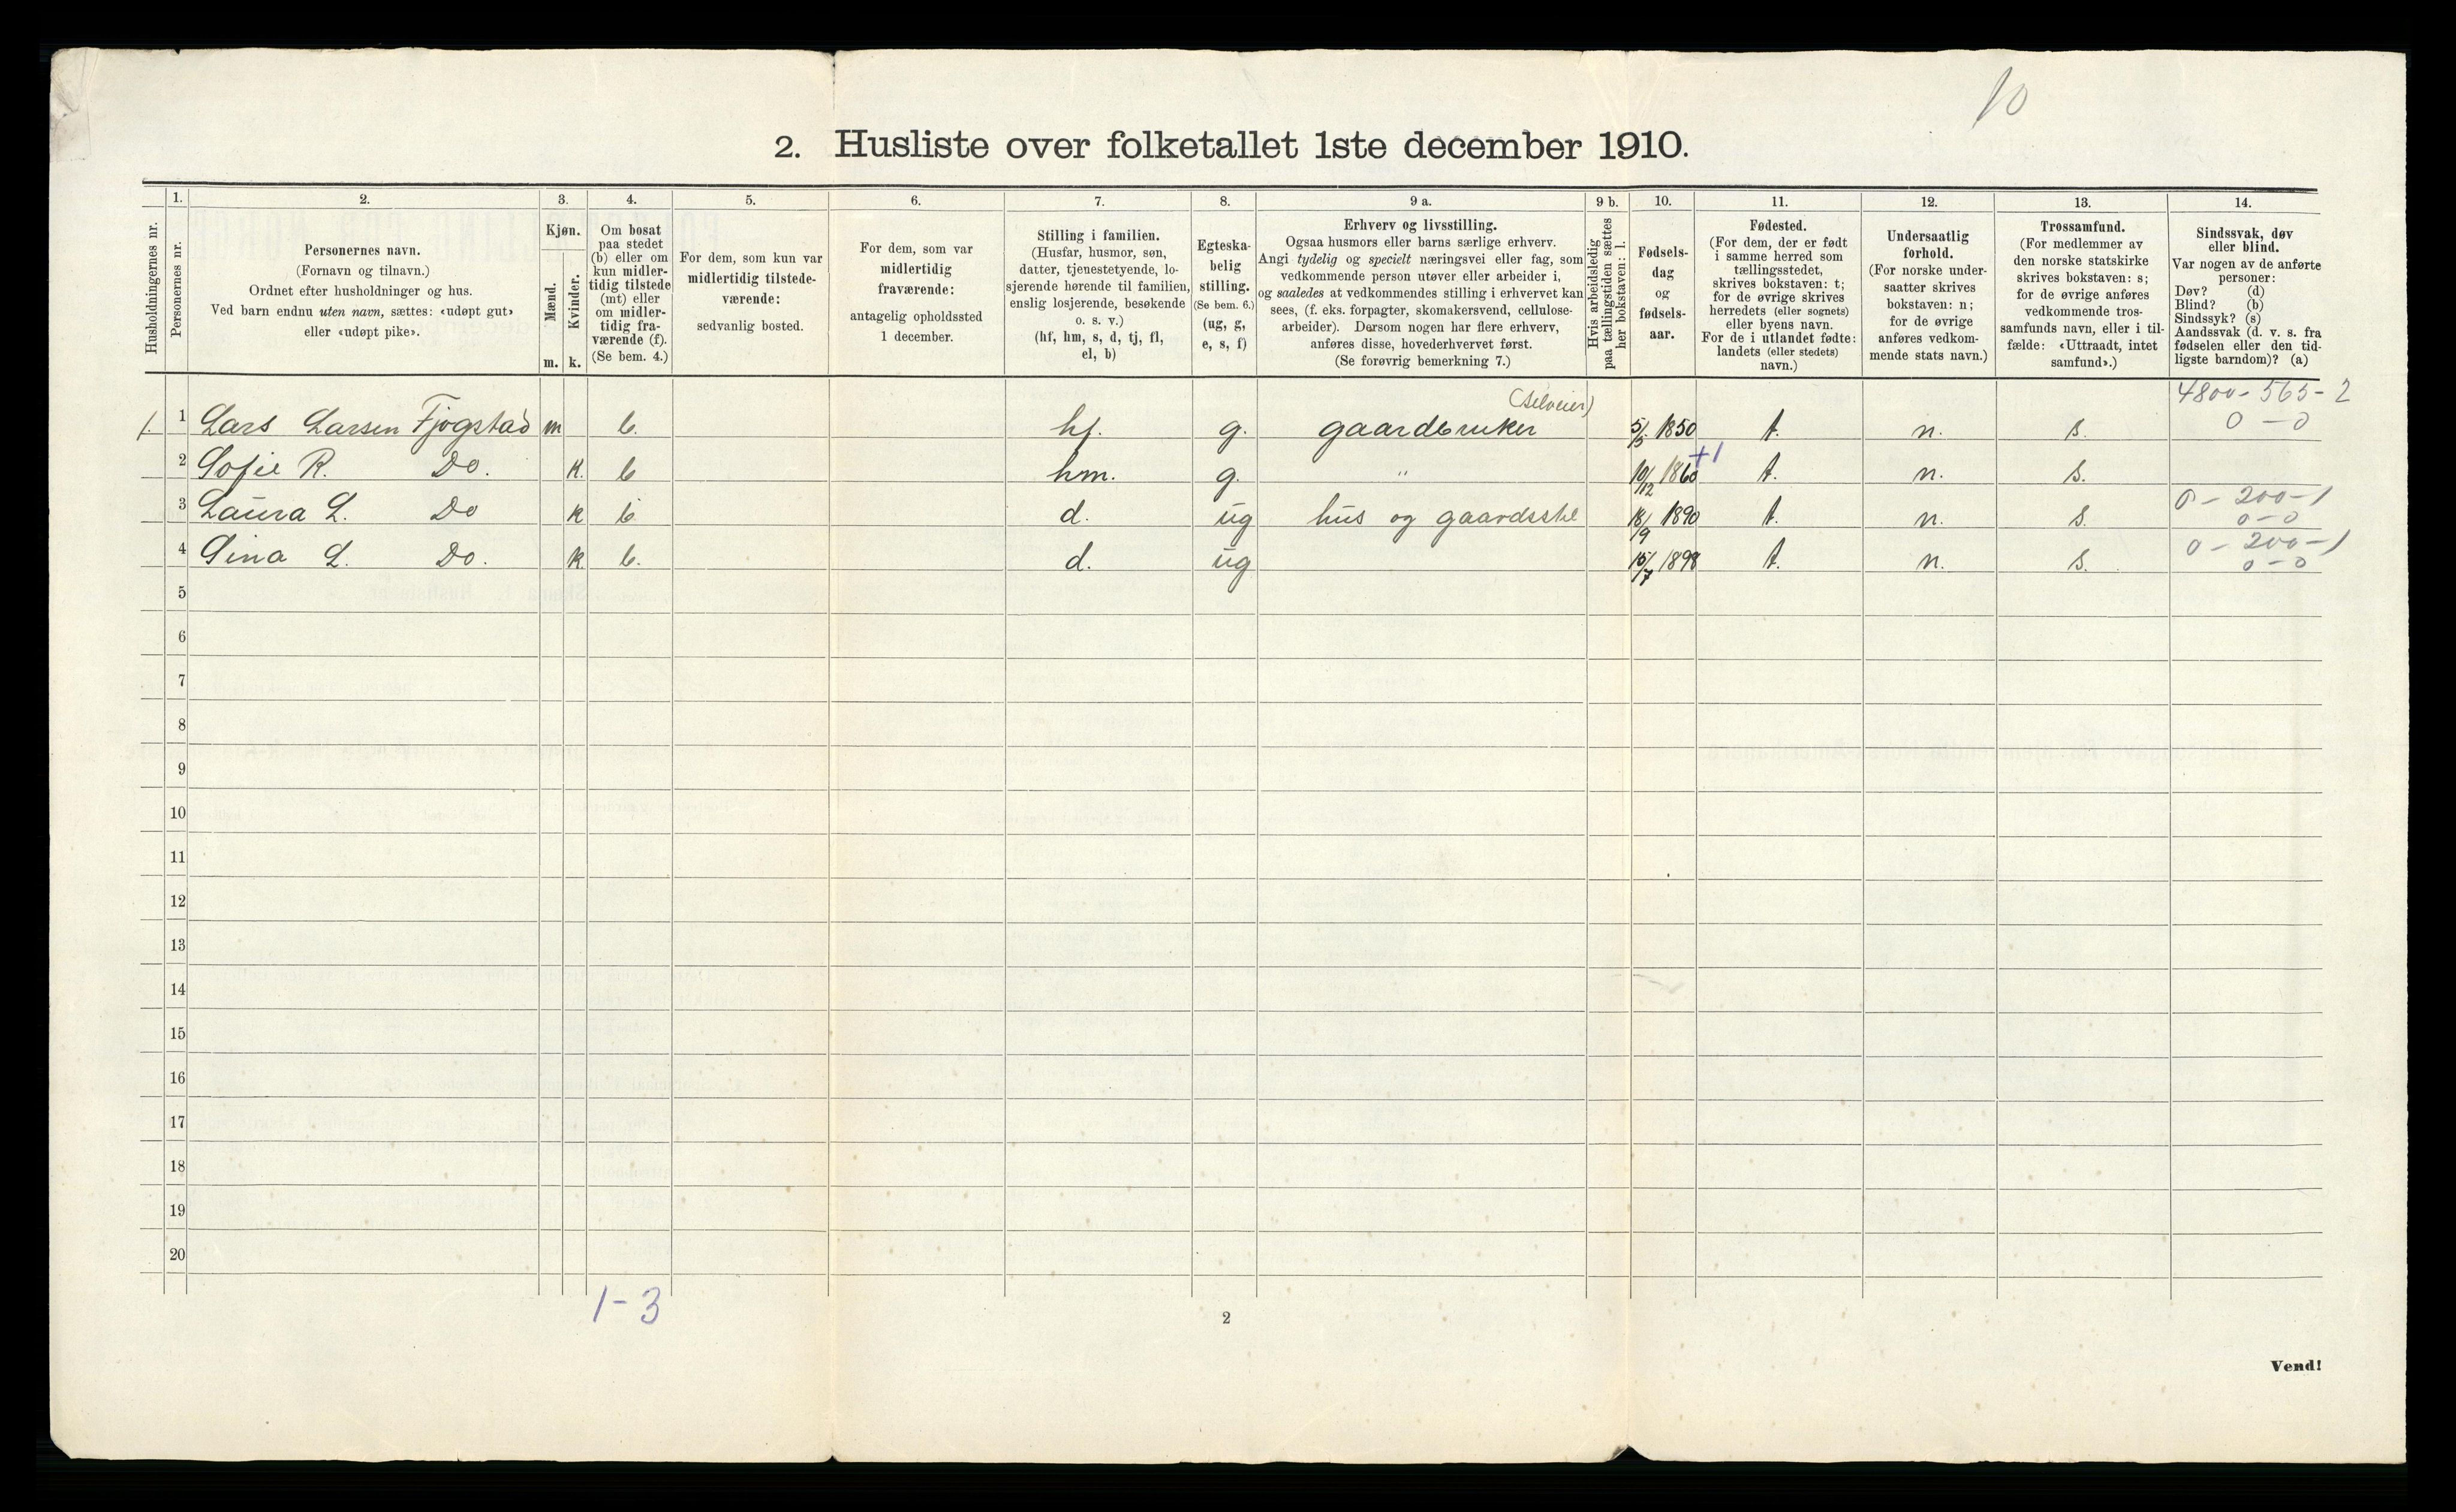 10
2. Husliste over folketallet 1ste december 1910.
Husholdningernes nr.
1.
Personernes nr.
2.
Personernes navn.
(Fornavn og tilnavn.)
Ordnet efter husholdninger og hus.
Ved barn endnu uten navn, sættes: «udøpt gut»
eller «udøpt pike».
3.
Kjøn.
Mænd.
m.
Kvinder.
k.
4.
Om bosat
paa stedet
(b) eller om
kun midler-
tidig tilstede
(mt) eller
om midler-
tidig fra-
værende (f).
(Se bem. 4.)
5.
For dem, som kun var
midlertidig tilstede-
værende:
sedvanlig bosted.
6.
For dem, som var
midlertidig
fraværende:
antagelig opholdssted
1 december.
7.
Stilling i familien.
(Husfar, husmor, søn,
datter, tjenestetyende, lo-
sjerende hørende til familien,
enslig losjerende, besøkende
o. s. v.)
(hf, hm, s, d, tj, fl,
el, b)
8.
Egteska-
belig
stilling.
(Se bem. 6.)
(ug, g,
e, s, f)
9 a.
Erhverv og livsstilling.
Ogsaa husmors eller barns særlige erhverv.
Angi tydelig og specielt næringsvei eller fag, som
vedkommende person utøver eller arbeider i,
og saaledes at vedkommendes stilling i erhvervet kan
sees, (f. eks. forpagter, skomakersvend, cellulose-
arbeider). Dersom nogen har flere erhverv,
anføres disse, hovederhvervet først.
(Se forøvrig bemerkning 7.)
9 b.
Hvis arbeidsledig
paa tællingstiden sættes
her bokstaven: l.
10.
Fødsels-
dag
og
fødsels-
aar.
11.
Fødested.
(For dem, der er født
i samme herred som
tællingsstedet,
skrives bokstaven: t;
for de øvrige skrives
herredets (eller sognets)
eller byens navn.
For de i utlandet fødte:
landets (eller stedets)
navn.)
12.
Undersaatlig
forhold.
(For norske under-
saatter skrives
bokstaven: n;
for de øvrige
anføres vedkom-
mende stats navn.)
13.
Trossamfund.
(For medlemmer av
den norske statskirke
skrives bokstaven: s;
for de øvrige anføres
vedkommende tros-
samfunds navn, eller i til-
fælde: «Uttraadt, intet
samfund».)
14.
Sindssvak, døv
eller blind.
Var nogen av de anførte
personer:
Døv? (d)
Blind? (b)
Sindssyk? (s)
Aandssvak (d. v. s. fra
fødselen eller den tid-
ligste barndom)? (a)
(selveier) 4800-565-2
1. 1 Lars Larsen Fjogstad m b. hf. g. gaardbruker 5/5 1850 t. n. s. 0-0
2 Sofie R. Do. k. b hm. g. " 10/12 1860 +1 t. n. s.
3 Laura L. Do k b d. ug hus og gaardsstel 18/9 1890 t. n. s. 0-200-1
0-0
4 Sina L. Do. k. b. d. ug 15/7 1898 t. n. s. 0-200-1
0-0
5
6
7
8
9
10
11
12
13
14
15
16
17
18
19
20
1-3
2
Vend!